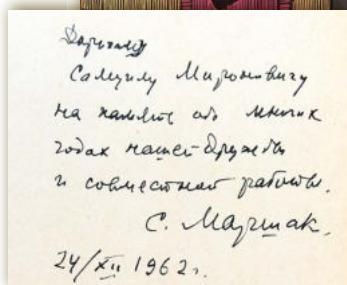 Дорогому
Самуилу Мироновичу
на память об многих
годах нашей дружбы
и совместной работы.
С. Маршак.
24/XII 1962 г.